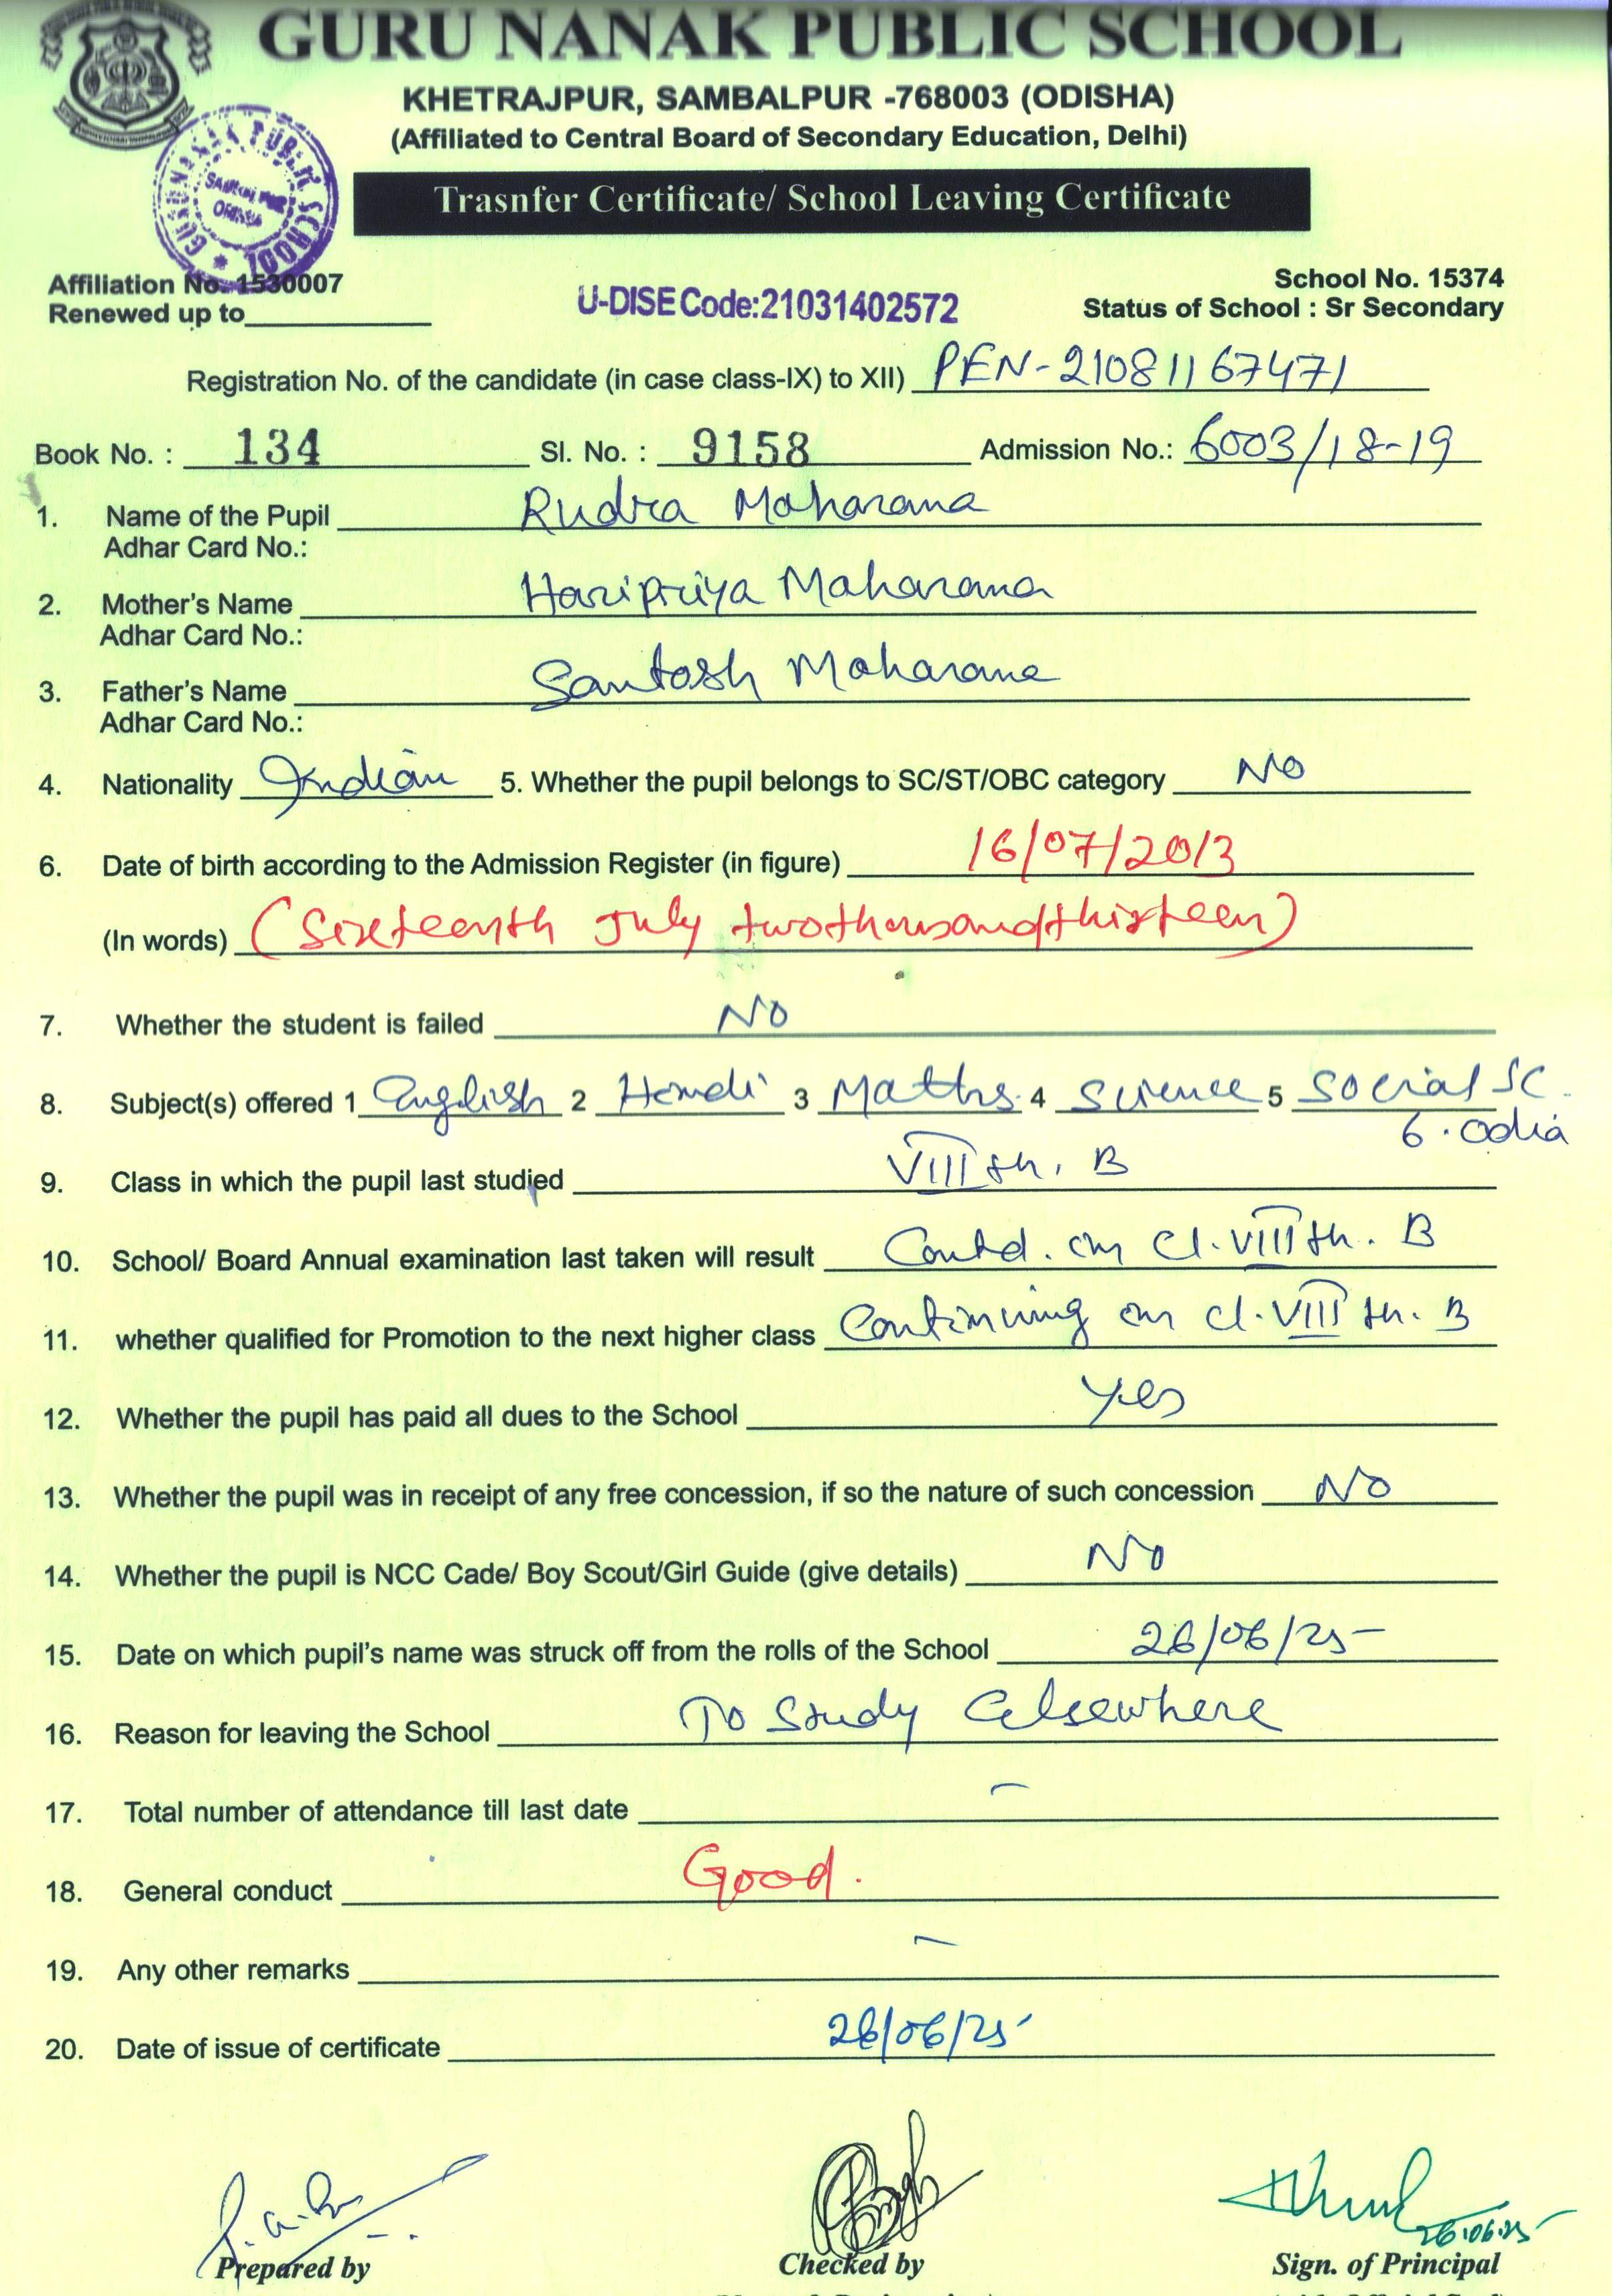 GURU NANAK PUBLIC SCHOOL
KHETRAJPUR, SAMBALPUR -768003 (ODISHA)
(Affiliated to Central Board of Secondary Education, Delhi)
Trasnfer Certificate/ School Leaving Certificate
GURU NANAK PUBLIC SCHOOL
Affiliation No. 1530007
School No. 15374
Renewed up to
U-DISE Code:21031402572
Status of School : Sr Secondary
Registration No. of the candidate (in case class-IX) to XII) PEN-21081167471
Book No. : 134 Sl. No. : 9158 Admission No.: 6003/18-19
1. Name of the Pupil Rudra Maharana
Adhar Card No.:
2. Mother's Name Haripriya Maharana
Adhar Card No.:
3. Father's Name Santosh Maharana
Adhar Card No.:
4. Nationality Indian 5. Whether the pupil belongs to SC/ST/OBC category No
6. Date of birth according to the Admission Register (in figure) 16/07/2013
(In words) (Sixteenth July twothousandthirteen)
7. Whether the student is failed No
8. Subject(s) offered 1 English 2 Hindi 3 Maths 4 Science 5 Social Sc.
6. Odia
9. Class in which the pupil last studied VIII th. B
10. School/ Board Annual examination last taken will result Contd. in Cl. VIII th. B
11. whether qualified for Promotion to the next higher class Continuing in cl. VIII th. B
12. Whether the pupil has paid all dues to the School Yes
13. Whether the pupil was in receipt of any free concession, if so the nature of such concession No
14. Whether the pupil is NCC Cade/ Boy Scout/Girl Guide (give details) No
15. Date on which pupil's name was struck off from the rolls of the School 26/06/25
16. Reason for leaving the School To Study Elsewhere
17. Total number of attendance till last date –
18. General conduct Good.
19. Any other remarks –
20. Date of issue of certificate 26/06/25
26.06.25
Prepared by Checked by Sign. of Principal